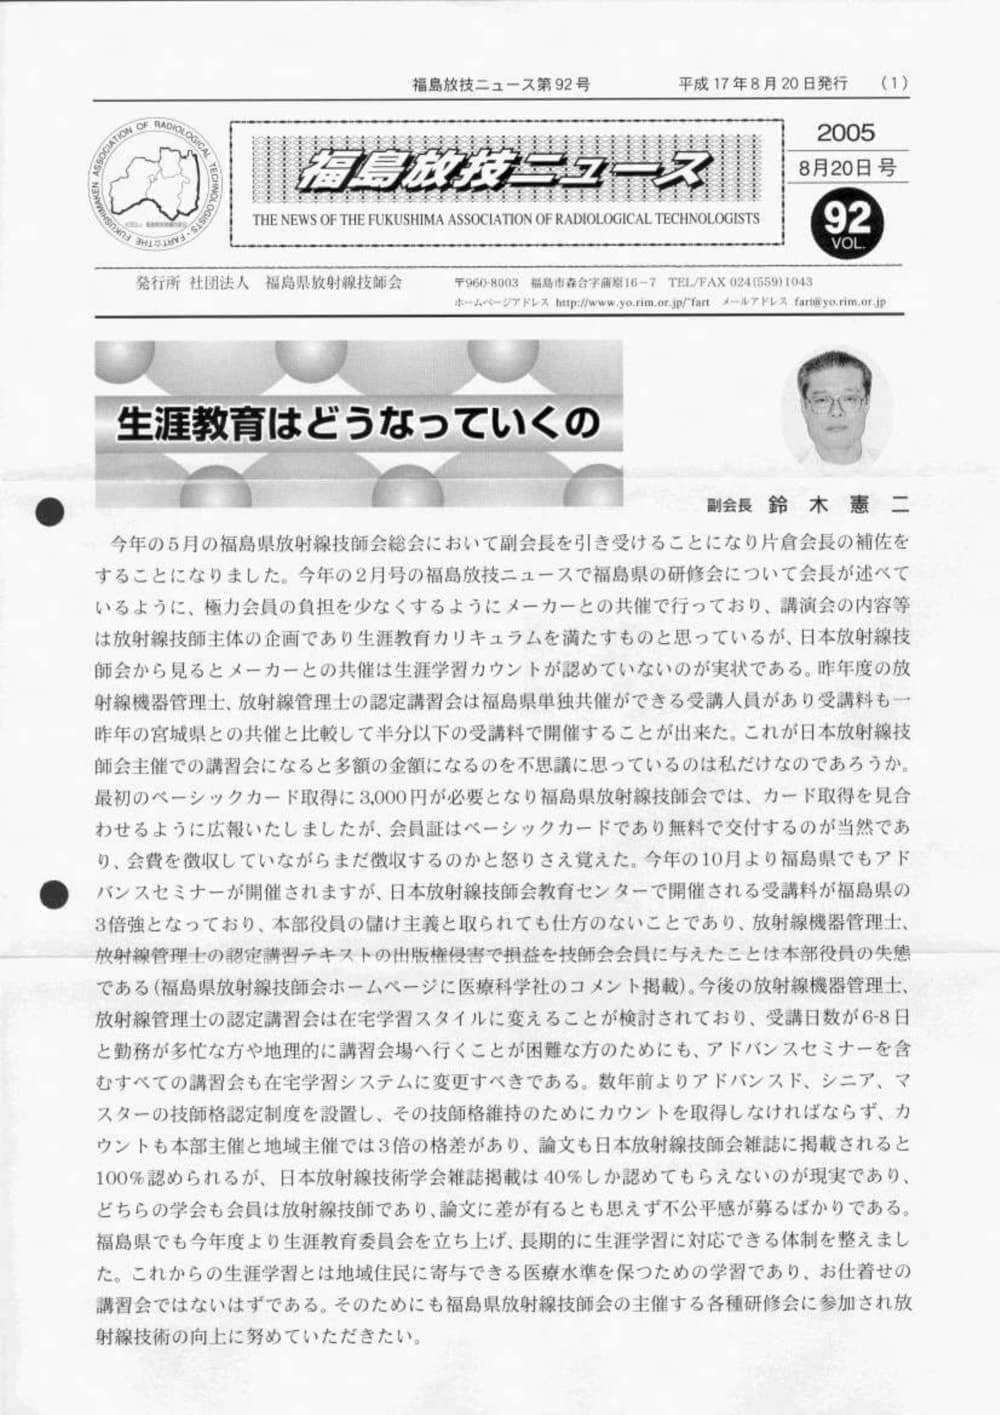 福島放技ニュース第92号　平成17年8月20日発行　(1)
THE FUKUSHIMAKEN ASSOCIATION OF RADIOLOGICAL TECHNOLOGISTS・FART☆
福島放技ニュース
THE NEWS OF THE FUKUSHIMA ASSOCIATION OF RADIOLOGICAL TECHNOLOGISTS
2005
8月20日 号
92
VOL.
発行所 社団法人　福島県放射線技師会
〒960-8003　福島市森合字蒲原16−7　TEL/FAX 024(559)1043
ホームページアドレス http://www.yo.rim.or.jp/~fart　メールアドレス fart@yo.rim.or.jp
生涯教育はどうなっていくの
副会長　鈴　木　憲　二
今年の5月の福島県放射線技師会総会において副会長を引き受けることになり片倉会長の補佐を
することになりました。今年の2月号の福島放技ニュースで福島県の研修会について会長が述べて
いるように、極力会員の負担を少なくするようにメーカーとの共催で行っており、講演会の内容等
は放射線技師主体の企画であり生涯教育カリキュラムを満たすものと思っているが、日本放射線技
師会から見るとメーカーとの共催は生涯学習カウントが認めていないのが実状である。昨年度の放
射線機器管理士、放射線管理士の認定講習会は福島県単独共催ができる受講人員があり受講料も一
昨年の宮城県との共催と比較して半分以下の受講料で開催することが出来た。これが日本放射線技
師会主催での講習会になると多額の金額になるのを不思議に思っているのは私だけなのであろうか。
最初のベーシックカード取得に3,000円が必要となり福島県放射線技師会では、カード取得を見合
わせるように広報いたしましたが、会員証はベーシックカードであり無料で交付するのが当然であ
り、会費を徴収していながらまだ徴収するのかと怒りさえ覚えた。今年の10月より福島県でもアド
バンスセミナーが開催されますが、日本放射線技師会教育センターで開催される受講料が福島県の
3倍強となっており、本部役員の儲け主義と取られても仕方のないことであり、放射線機器管理士、
放射線管理士の認定講習テキストの出版権侵害で損益を技師会会員に与えたことは本部役員の失態
である(福島県放射線技師会ホームページに医療科学社のコメント掲載)。今後の放射線機器管理士、
放射線管理士の認定講習会は在宅学習スタイルに変えることが検討されており、受講日数が6-8日
と勤務が多忙な方や地理的に講習会場へ行くことが困難な方のためにも、アドバンスセミナーを含
むすべての講習会も在宅学習システムに変更すべきである。数年前よりアドバンスド、シニア、マ
スターの技師格認定制度を設置し、その技師格維持のためにカウントを取得しなければならず、カ
ウントも本部主催と地域主催では3倍の格差があり、論文も日本放射線技師会雑誌に掲載されると
100%認められるが、日本放射線技術学会雑誌掲載は40%しか認めてもらえないのが現実であり、
どちらの学会も会員は放射線技師であり、論文に差が有るとも思えず不公平感が募るばかりである。
福島県でも今年度より生涯教育委員会を立ち上げ、長期的に生涯学習に対応できる体制を整えまし
た。これからの生涯学習とは地域住民に寄与できる医療水準を保つための学習であり、お仕着せの
講習会ではないはずである。そのためにも福島県放射線技師会の主催する各種研修会に参加され放
射線技術の向上に努めていただきたい。